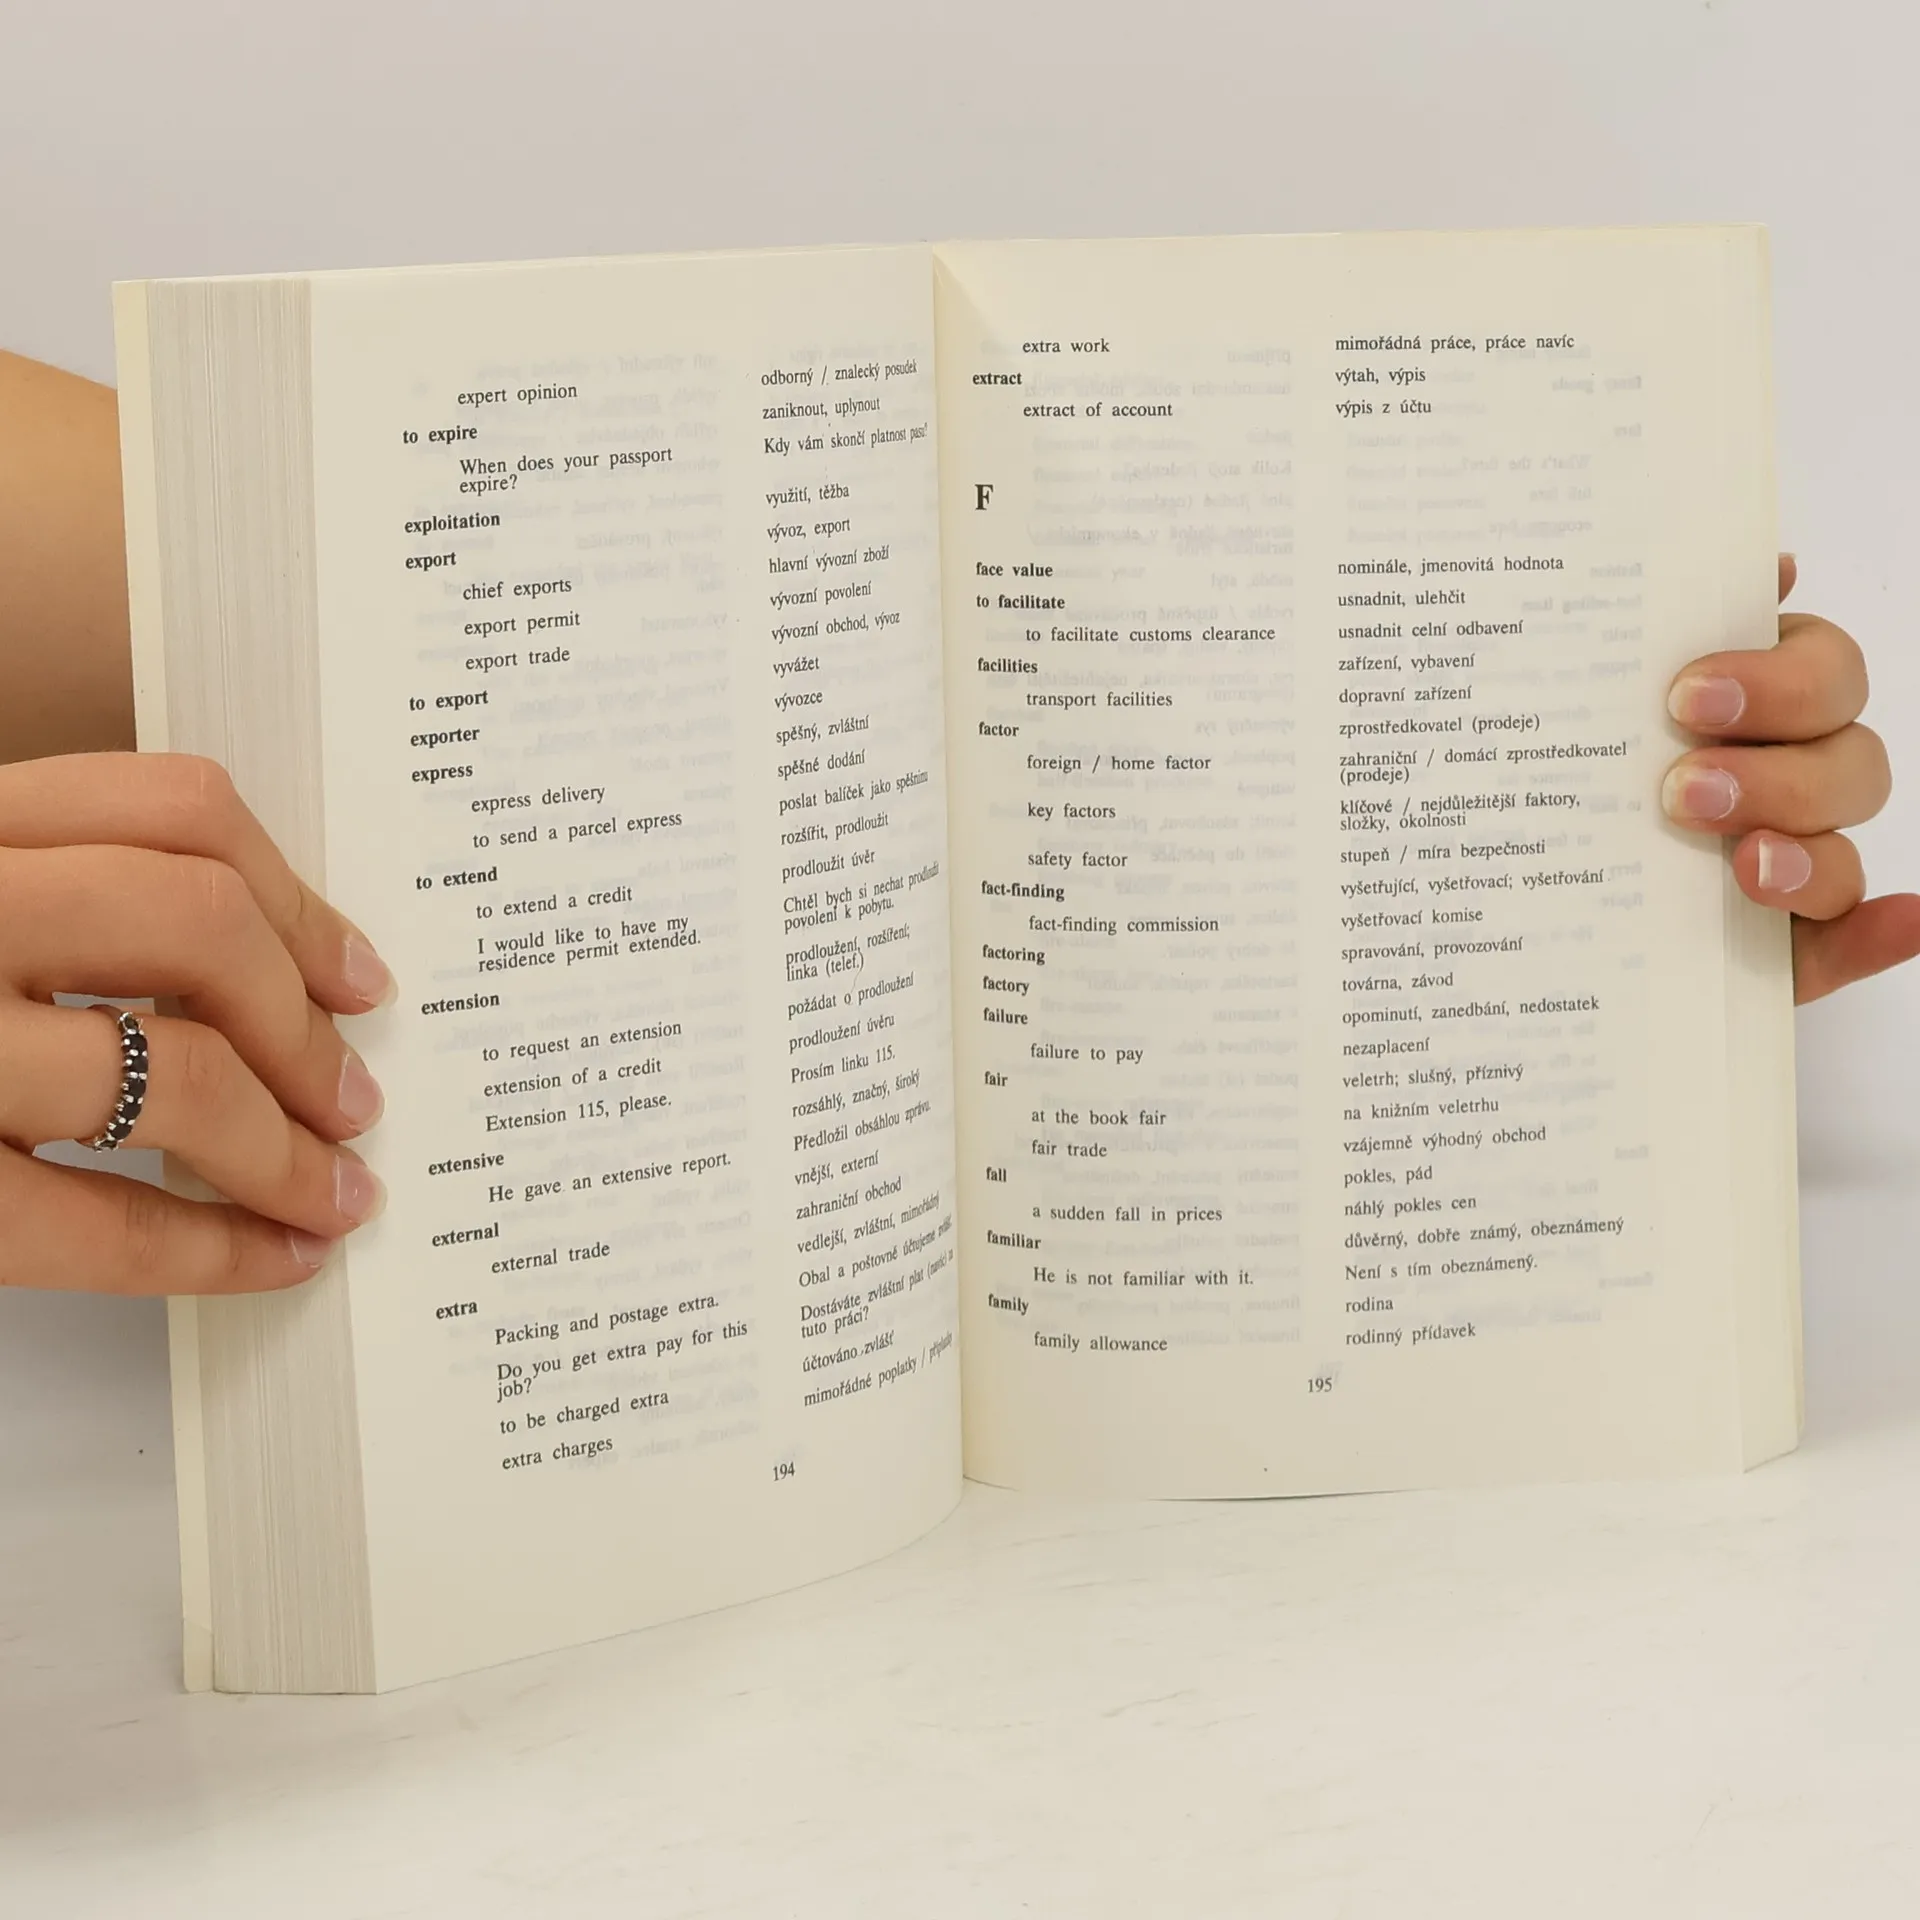 expert opinion odborný / znalecký posudek
to expire zaniknout, uplynout
When does your passport Kdy vám skončí platnost pasu?
expire?
exploitation využití, těžba
export vývoz, export
chief exports hlavní vývozní zboží
export permit vývozní povolení
export trade vývozní obchod, vývoz
to export vyvážet
exporter vývozce
express spěšný, zvláštní
express delivery spěšné dodání
to send a parcel express poslat balíček jako spěšninu
to extend rozšířit, prodloužit
to extend a credit prodloužit úvěr
I would like to have my Chtěl bych si nechat prodloužit
residence permit extended. povolení k pobytu.
extension prodloužení, rozšíření;
linka (telef.)
to request an extension požádat o prodloužení
extension of a credit prodloužení úvěru
Extension 115, please. Prosím linku 115.
extensive rozsáhlý, značný, široký
He gave an extensive report. Předložil obsáhlou zprávu.
external vnější, externí
external trade zahraniční obchod
extra vedlejší, zvláštní, mimořádný
Packing and postage extra. Obal a poštovné účtujeme zvlášť.
Do you get extra pay for this Dostáváte zvláštní plat (navíc) za
job? tuto práci?
to be charged extra účtováno zvlášť
extra charges mimořádné poplatky / příplatky
194
extra work mimořádná práce, práce navíc
extract výtah, výpis
extract of account výpis z účtu
F
face value nominále, jmenovitá hodnota
to facilitate usnadnit, ulehčit
to facilitate customs clearance usnadnit celní odbavení
facilities zařízení, vybavení
transport facilities dopravní zařízení
factor zprostředkovatel (prodeje)
foreign / home factor zahraniční / domácí zprostředkovatel
(prodeje)
key factors klíčové / nejdůležitější faktory,
složky, okolnosti
safety factor stupeň / míra bezpečnosti
fact-finding vyšetřující, vyšetřovací; vyšetřování
fact-finding commission vyšetřovací komise
factoring spravování, provozování
factory továrna, závod
failure opominutí, zanedbání, nedostatek
failure to pay nezaplacení
fair veletrh; slušný, příznivý
at the book fair na knižním veletrhu
fair trade vzájemně výhodný obchod
fall pokles, pád
a sudden fall in prices náhlý pokles cen
familiar důvěrný, dobře známý, obeznámený
He is not familiar with it. Není s tím obeznámený.
family rodina
family allowance rodinný přídavek
195